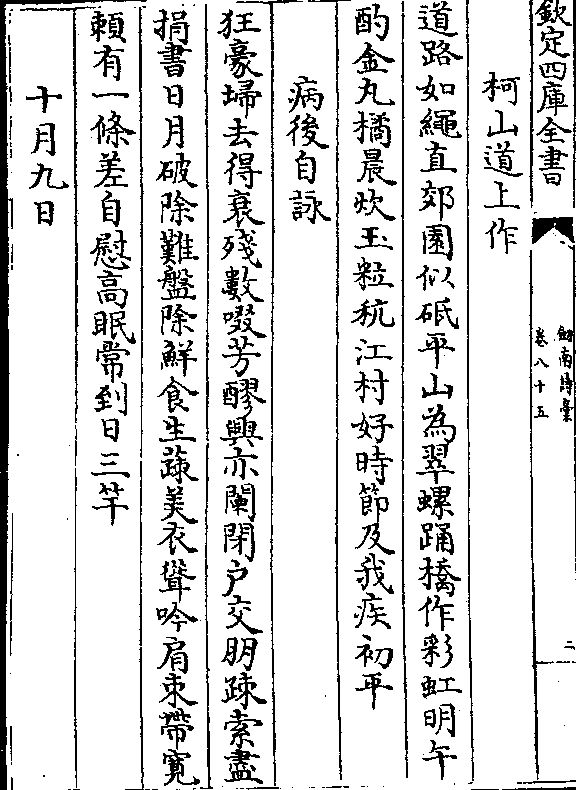 欽定四庫全書
劍南詩稾
卷八十五
二
柯山道上作
道路如繩直郊園似砥平山為翠螺踊橋作彩虹明午
酌金丸橘晨炊玉粒秔江村好時節及我疾初平
病後自詠
狂豪埽去得衰殘數啜芳醪興亦闌閉户交朋踈索盡
捐書日月破除難盤除鮮食生蔬美衣聳吟肩束帶寛
頼有一條差自慰高眠常到日三竿
十月九日